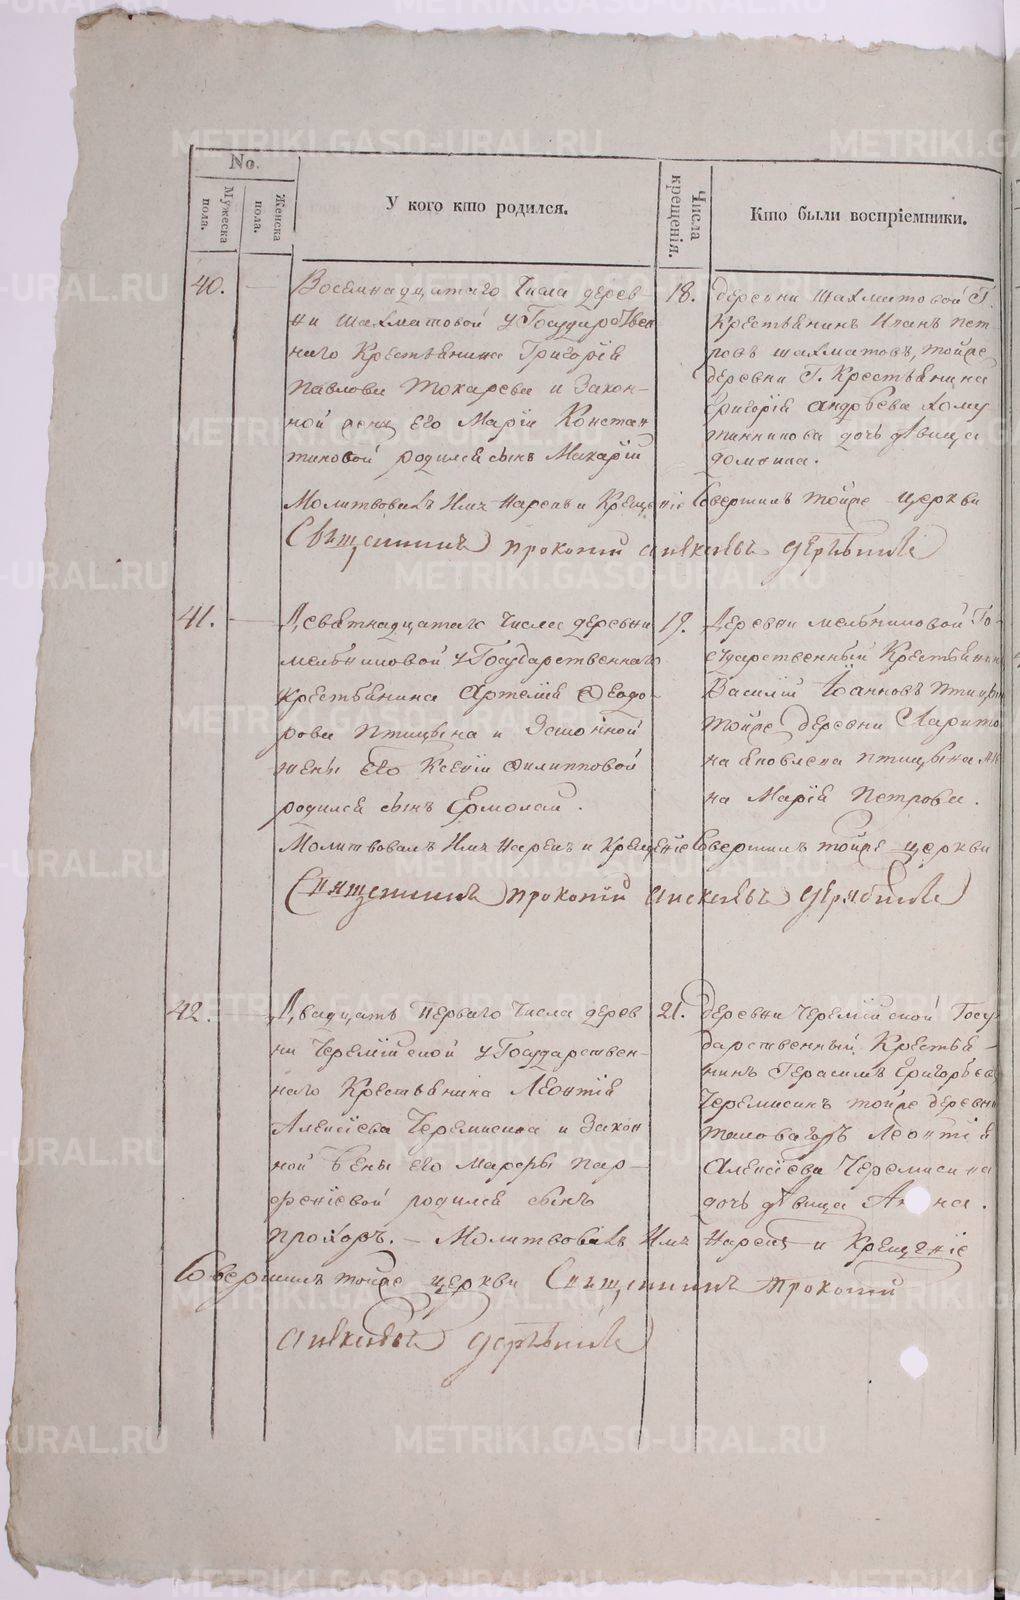 No.
Мужеска пола.
Женска пола.
У кого кто родился.
Числа крещенія.
Кто были воспріемники.
40. Восемнадцатаго Числа дерев-
ни Шахматовой у Государствен
наго Крестьянина Григорія
Павлова Токарева и Закон-
ной жены Его Маріи Констан
тиновой родился сынъ Макарій
18. деревни Шахматовой Г.
Крестьянинъ Иванъ Пет-
ровъ Шахматовъ, тойже
деревни Г. Крестьянина
Григорія Андреева
дочь дѣвица
Домника.
Молитвовалъ Имя Нарекъ и Крещеніе Совершилъ тойже церкви
Священникъ Прокопій
41. Девятнадцатаго Числа деревни
Мельниковой у Государственнаго
Крестьянина Артемія Феодо-
рова Птицына и Законной
жены Его Ксеніи Филипповой
родился сынъ Ермолай.
19. Деревни Мельниковой Го-
сударственный Крестьянин
Василій Іоанновъ Птицын
тойже деревни Харито
на Яковлева Птицына же
на Марія Петрова.
Молитвовалъ Имя Нарекъ и Крещеніе Совершилъ тойже церкви
Священникъ Прокопій
42. Двадцать Перваго Числа дерев
ни Черемисской у Государствен-
наго Крестьянина Леонтія
Алексіева Черемисина и Закон
ной Жены Его Марфы Пар-
феніевой родился сынъ
Прохоръ. – Молитвовалъ Имя Нарекъ и Крещеніе
21. деревни Черемисской Госу
дарственный Крестья-
нинъ Герасимъ Григорьев
Черемисинъ тойже деревни
Леонтія
Алексіева Черемисина
дочь дѣвица Анна.
Совершилъ тойже церкви Священникъ Прокопій
METRIKI.GASO-URAL.RU